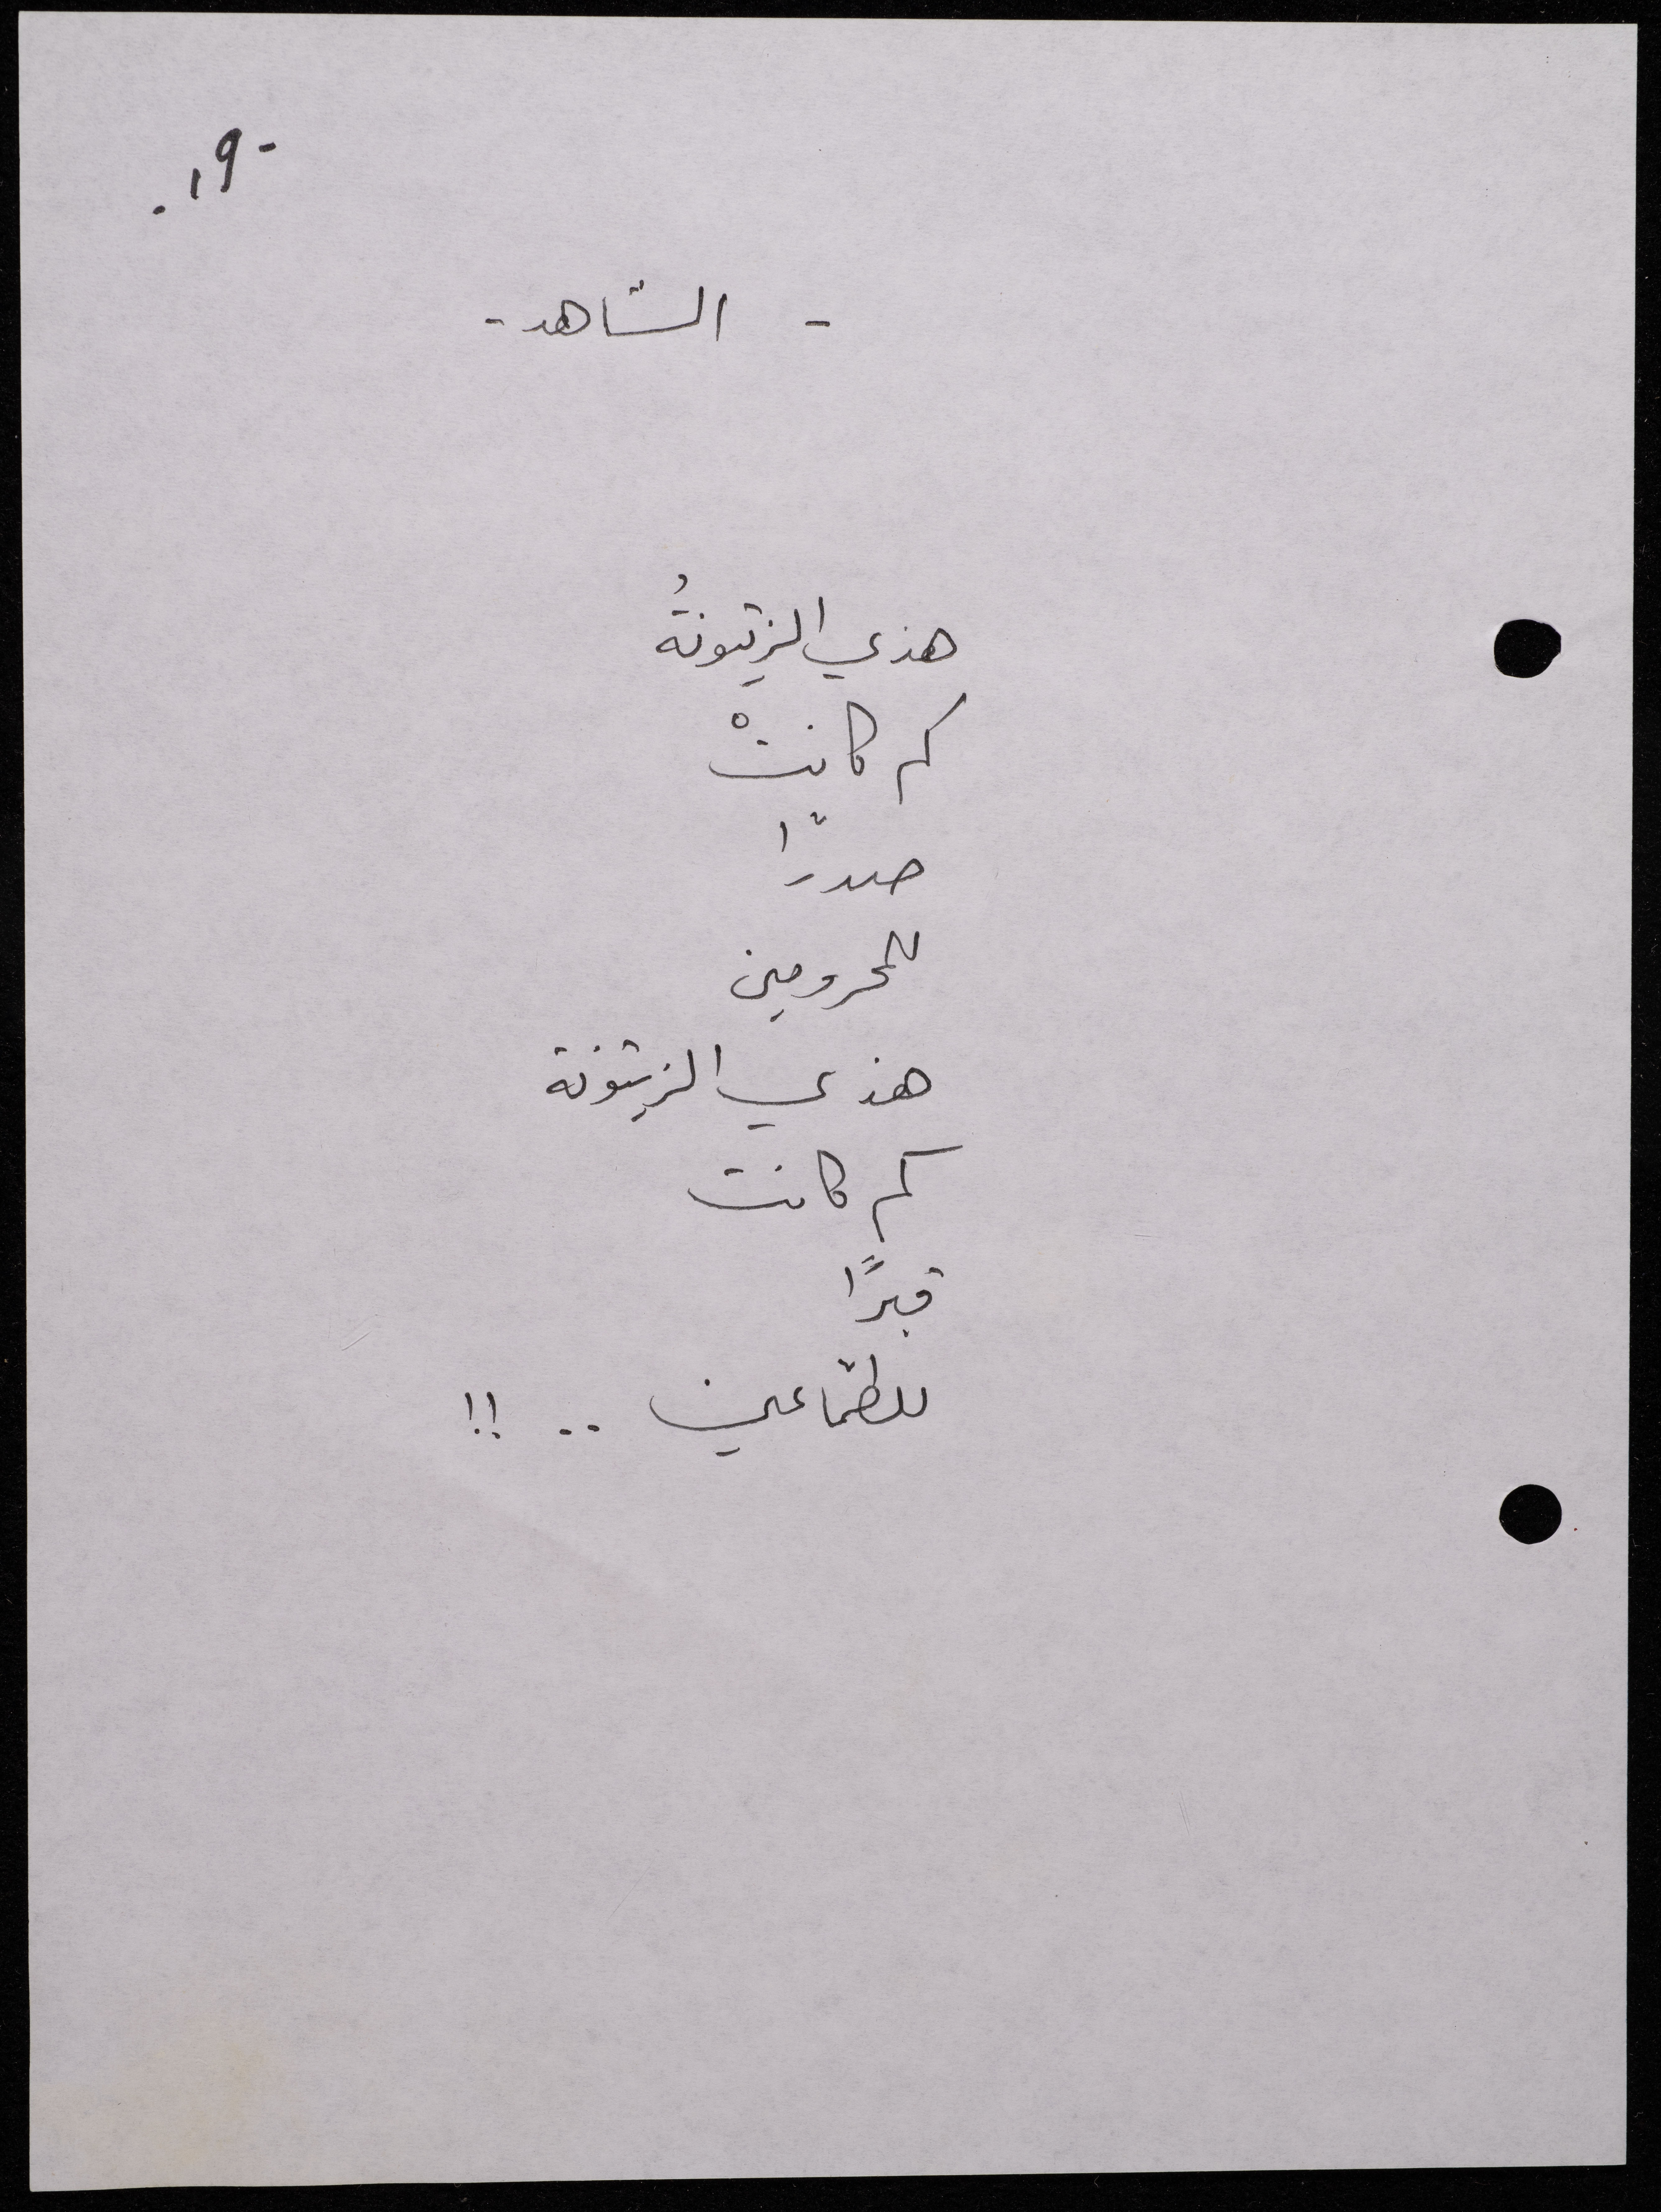 - الشاهد -
هذي الزيتونةُ
كم كانتْ
صدرًا
للمحرومين
هذي الزيتونة
كم كانت
قبرًا
للطمّاعين .. !!